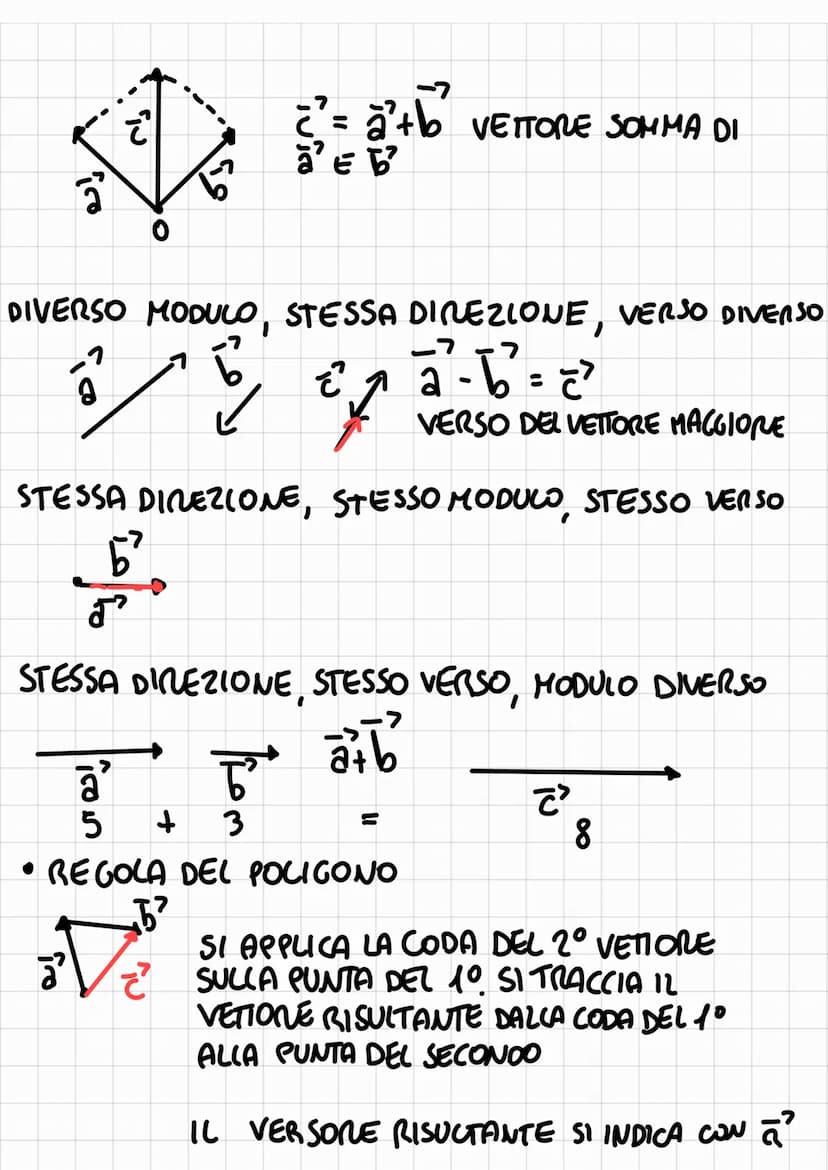 c⃗ = a⃗+b⃗ VETTORE SOMMA DI
a⃗ E b⃗
c⃗
a⃗
b⃗
O
DIVERSO MODULO, STESSA DIREZIONE, VERSO DIVERSO
a⃗ b⃗ c⃗ a⃗ - b⃗ = c⃗
VERSO DEL VETTORE MAGGIORE
STESSA DIREZIONE, STESSO MODULO, STESSO VERSO
b⃗
a⃗
STESSA DIREZIONE, STESSO VERSO, MODULO DIVERSO
a⃗ b⃗ a⃗+b⃗ c⃗
5 + 3 = 8
• REGOLA DEL POLIGONO
b⃗
a⃗
c⃗
SI APPLICA LA CODA DEL 2° VETTORE
SULLA PUNTA DEL 1°. SI TRACCIA IL
VETTORE RISULTANTE DALLA CODA DEL 1°
ALLA PUNTA DEL SECONDO
IL VERSORE RISULTANTE SI INDICA CON a⃗